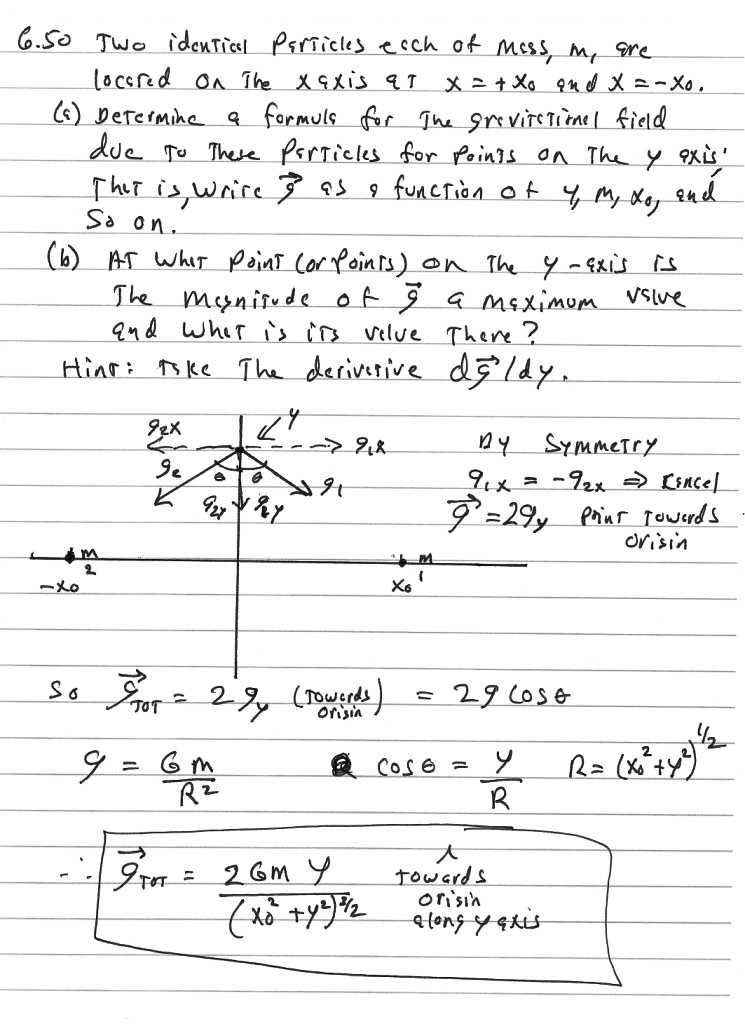 6.50 Two identical particles each of mass, m, are
located on the x axis at x = +x₀ and x = -x₀.
(a) Determine a formula for the gravitational field
due to these particles for points on the y axis;
That is, write g⃗ as a function of y, m, x₀, and
so on.
(b) At what point (or points) on the y-axis is
the magnitude of g⃗ a maximum value
and what is its value there?
Hint: Take the derivative dg⃗/dy.
g₂x y g₁x By symmetry
g₂ θ θ g₁ g₁x = -g₂x ⇒ cancel
g₂y g₁y g⃗ = 2gy point towards
origin
m m
2 1
-x₀ x₀
So g⃗TOT = 2gy (towards origin) = 2g cosθ
g = Gm/R² cosθ = y/R R = (x₀² + y²)^1/2
∴ g⃗TOT = 2Gm y/(x₀² + y²)^3/2 towards
origin
along y axis